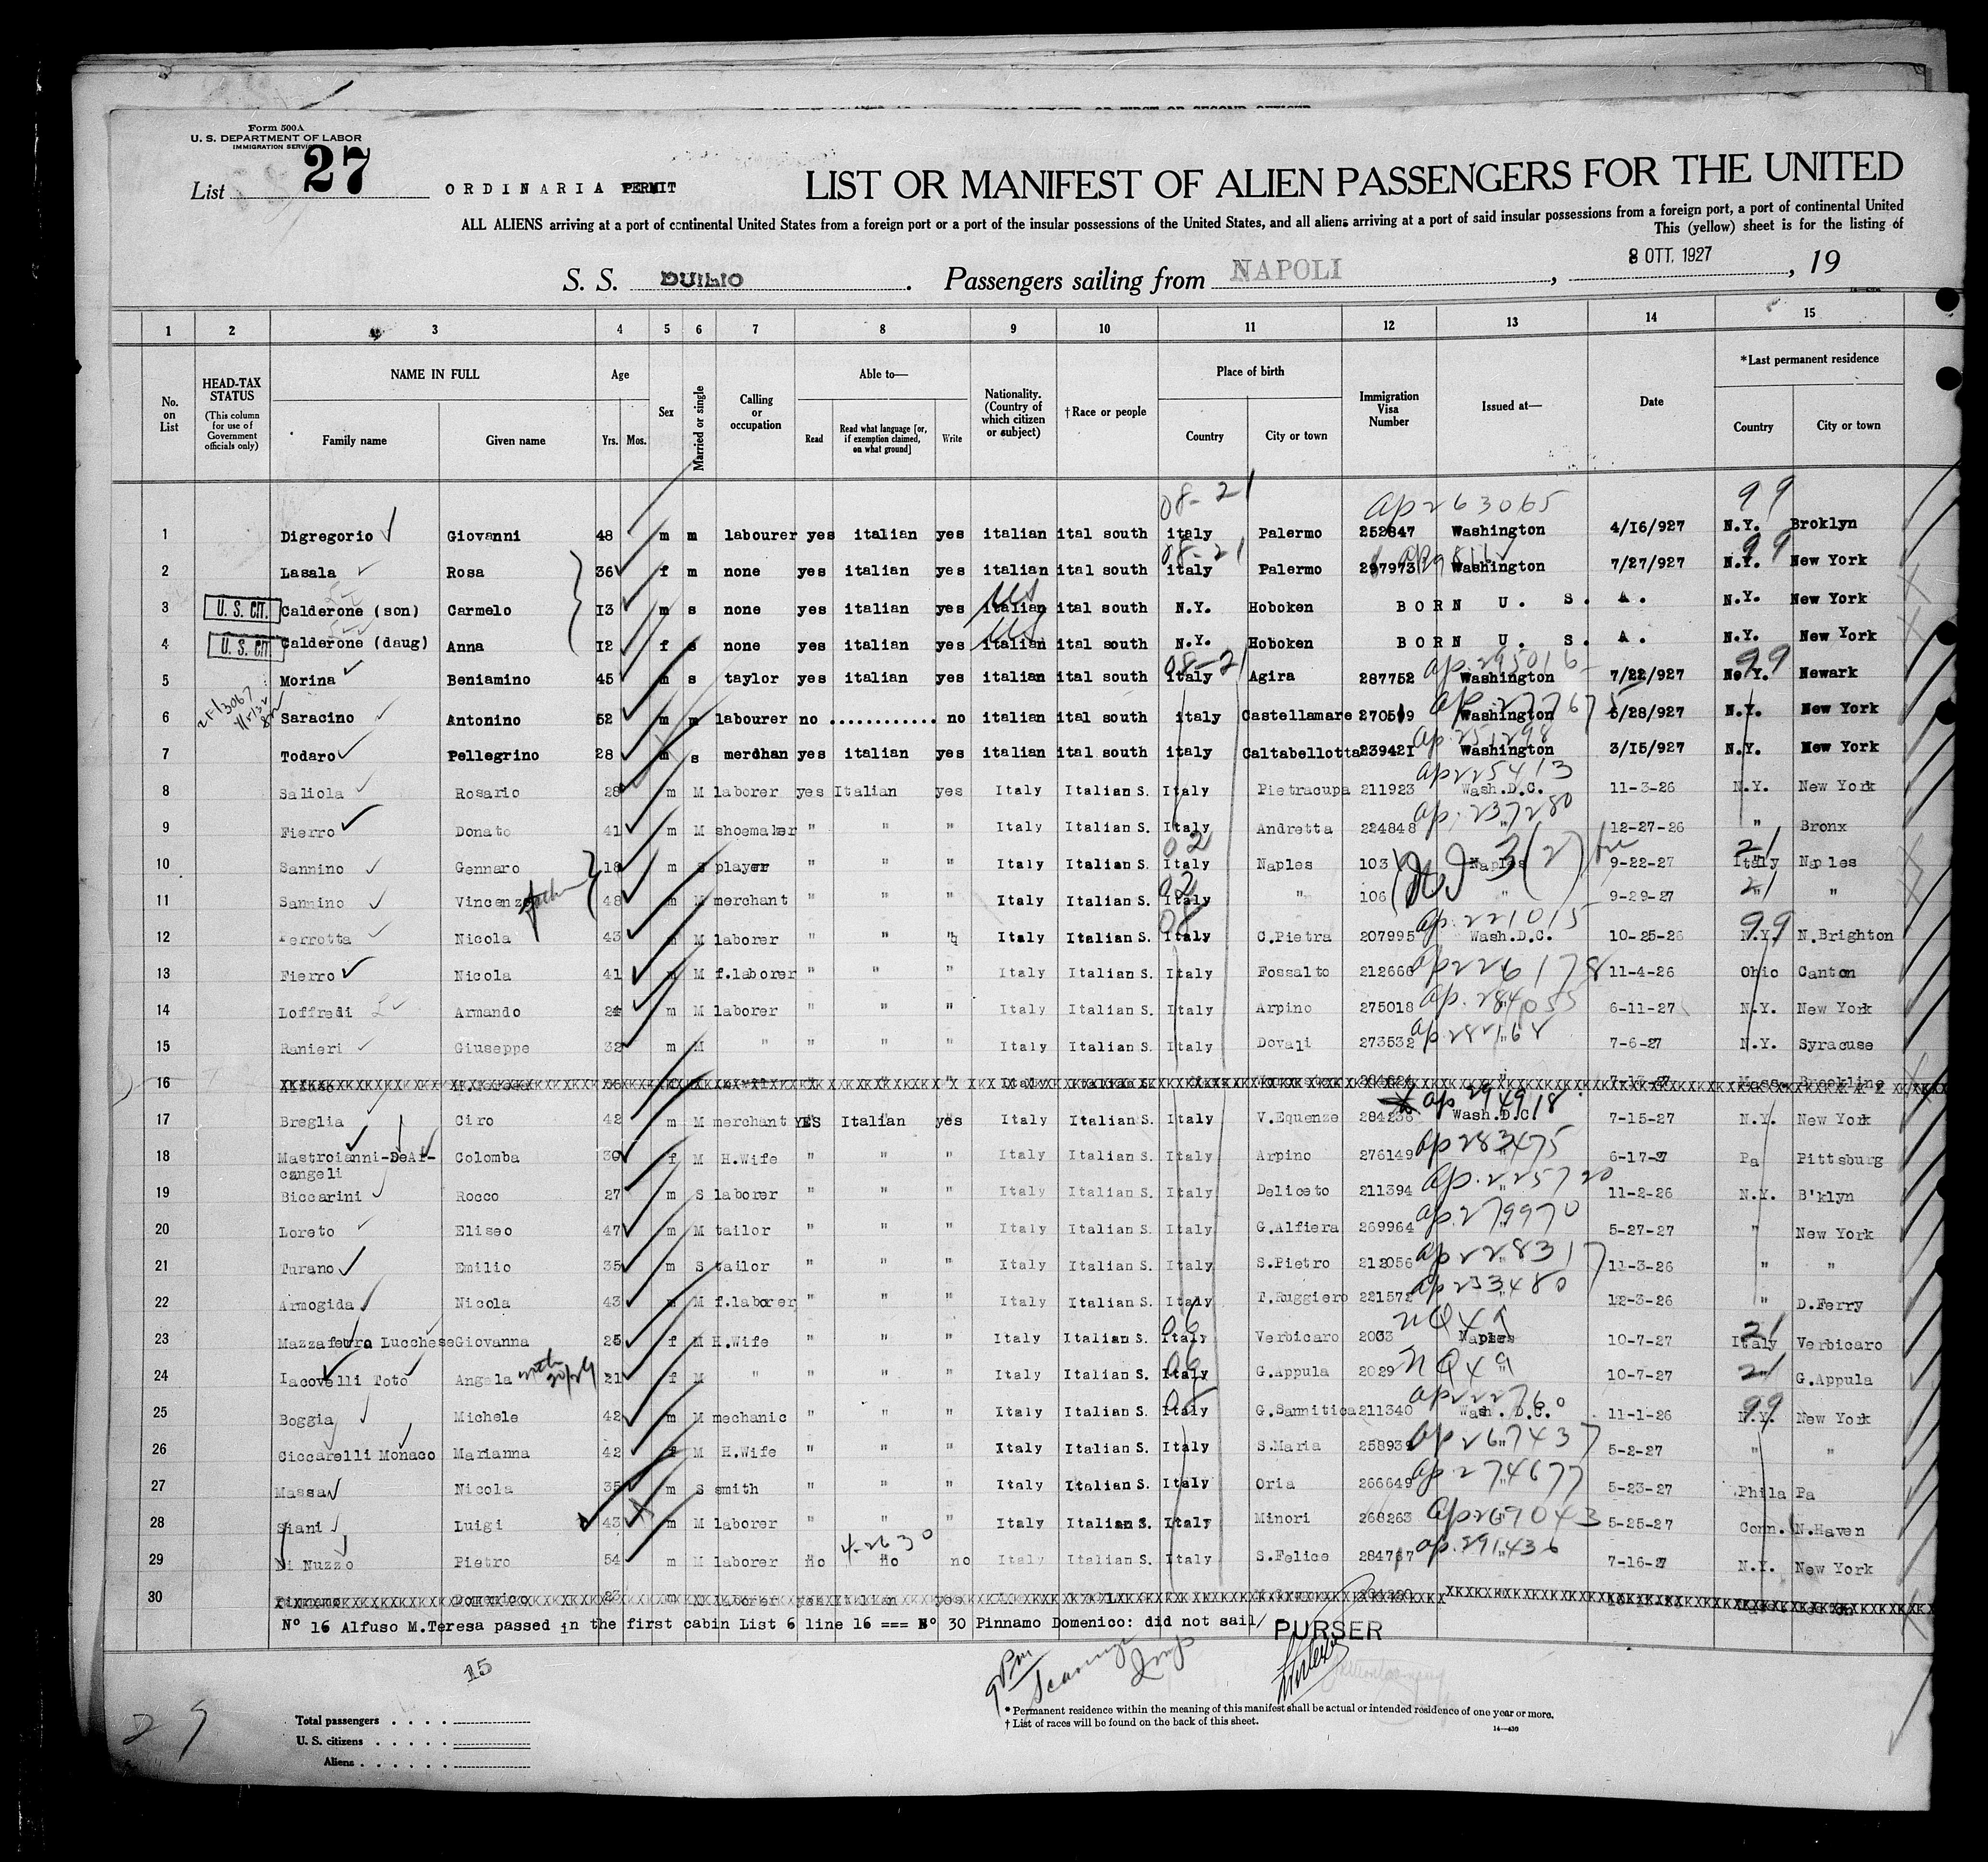 Form 500A
U. S. DEPARTMENT OF LABOR
IMMIGRATION SERVICE
List 27 ORDINARIA PERMIT
LIST OR MANIFEST OF ALIEN PASSENGERS FOR THE UNITED
ALL ALIENS arriving at a port of continental United States from a foreign port or a port of the insular possessions of the United States, and all aliens arriving at a port of said insular possessions from a foreign port, a port of continental United
This (yellow) sheet is for the listing of
S. S. DUILIO. Passengers sailing from NAPOLI, 8 OTT. 1927, 19
1 2 3 4 5 6 7 8 9 10 11 12 13 14 15
No. on List
HEAD-TAX STATUS (This column for use of Government officials only)
NAME IN FULL Family name Given name
Age Yrs. Mos.
Sex
Married or single
Calling or occupation
Able to— Read Read what language [or, if exemption claimed, on what ground] Write
Nationality. (Country of which citizen or subject)
†Race or people
Place of birth Country City or town
Immigration Visa Number
Issued at—
Date
*Last permanent residence Country City or town
08-21 ap263065 99
1 Digregorio Giovanni 48 m m labourer yes italian yes italian ital south italy Palermo 252847 Washington 4/16/927 N.Y. Broklyn
08-21 99
2 Lasala Rosa 36 f m none yes italian yes italian ital south italy Palermo 297973 Washington 7/27/927 N.Y. New York
3 U. S. CIT. Calderone (son) Carmelo 13 m s none yes italian yes italian US ital south N.Y. Hoboken BORN U. S. A. N.Y. New York
4 U. S. CIT. Calderone (daug) Anna 12 f s none yes italian yes italian US ital south N.Y. Hoboken BORN U. S. A. N.Y. New York
08-21 ap.295016 99
5 Morina Beniamino 45 m s taylor yes italian yes italian ital south italy Agira 287752 Washington 7/22/927 N.Y. Newark
6 Saracino Antonino 52 m m labourer no ............ no italian ital south italy Castellamare 270519 Washington 5/28/927 N.Y. New York
ap.251298
7 Todaro Pellegrino 28 m s merchan yes italian yes italian ital south italy Caltabellotta 239421 Washington 3/15/927 N.Y. New York
ap225413
8 Saliola Rosario 28 m M laborer yes Italian yes Italy Italian S. Italy Pietracupa 211923 Wash.D.C. 11-3-26 N.Y. New York
ap.237280
9 Fierro Donato 41 m M shoemaker " " " Italy Italian S. Italy Andretta 224848 " 12-27-26 " Bronx
02 21
10 Sannino Gennaro 18 m S player " " " Italy Italian S. Italy Naples 103 Naples 3(2) 9-22-27 Italy Naples
02 21
11 Sannino Vincenzo father 48 m M merchant " " " Italy Italian S. Italy " 106 " 9-29-27 " "
08 ap.221015 99
12 Perrotta Nicola 43 m M laborer " " " Italy Italian S. Italy C.Pietra 207995 Wash.D.C. 10-25-26 N.Y. N.Brighton
ap226178
13 Fierro Nicola 41 m M f.laborer " " " Italy Italian S. Italy Fossalto 212666 11-4-26 Ohio Canton
ap.284055
14 Loffredi Armando 24 m M laborer " " " Italy Italian S. Italy Arpino 275018 " 6-11-27 N.Y. New York
ap.282168
15 Ranieri Giuseppe 32 m M " " " " Italy Italian S. Italy Dovali 273532 " 7-6-27 N.Y. Syracuse
16
ap294918
17 Breglia Ciro 42 m M merchant YES Italian yes Italy Italian S. Italy V.Equenze 284236 Wash.D.C 7-15-27 N.Y. New York
ap283475
18 Mastroianni-DeAr-cangeli Colomba 30 f M H.Wife " " " Italy Italian S. Italy Arpino 276149 " 6-17-27 Pa Pittsburg
ap.225720
19 Biccarini Rocco 27 m S laborer " " " Italy Italian S. Italy Deliceto 211394 " 11-2-26 N.Y. B'klyn
ap.279970
20 Loreto Eliseo 47 m M tailor " " " Italy Italian S. Italy G.Alfiera 269964 " 5-27-27 " New York
ap228317
21 Turano Emilio 35 m S tailor " " " Italy Italian S. Italy S.Pietro 212056 " 11-3-26 " "
ap233480
22 Armogida Nicola 43 m M f.laborer " " " Italy Italian S. Italy T.Ruggiero 221572 " 12-3-26 " D.Ferry
06 NQ49 21
23 Mazzaferro Lucchese Giovanna 25 f M H.Wife " " " Italy Italian S. Italy Verbicaro 2033 Naples 10-7-27 Italy Verbicaro
06 NQ49 21
24 Iacovelli Toto Angela 21 f M " " " " Italy Italian S. Italy G.Appula 2029 " 10-7-27 " G.Appula
05 ap222760 99
25 Boggia Michele 42 m M mechanic " " " Italy Italian S. Italy G.Sannitica 211340 Wash. D.C. 11-1-26 N.Y. New York
ap267437
26 Ciccarelli Monaco Marianna 42 f M H.Wife " " " Italy Italian S. Italy S.Maria 258939 " 5-2-27 " "
ap.274677
27 Massa Nicola 35 m S smith " " " Italy Italian S. Italy Oria 266649 " 5-23-27 Phila Pa
ap269043
28 Siani Luigi 43 m M laborer " " " Italy Italian S. Italy Minori 268263 " 5-25-27 Conn. N.Haven
4-2630 ap.291436
29 Di Nuzzo Pietro 54 m M laborer no no no Italy Italian S. Italy S.Felice 284767 " 7-16-27 N.Y. New York
30
N° 16 Alfuso M.Teresa passed in the first cabin List 6 line 16 === N° 30 Pinnamo Domenico: did not sail/ PURSER
15
29
Total passengers
U. S. citizens
Aliens
* Permanent residence within the meaning of this manifest shall be actual or intended residence of one year or more.
† List of races will be found on the back of this sheet.
14—430